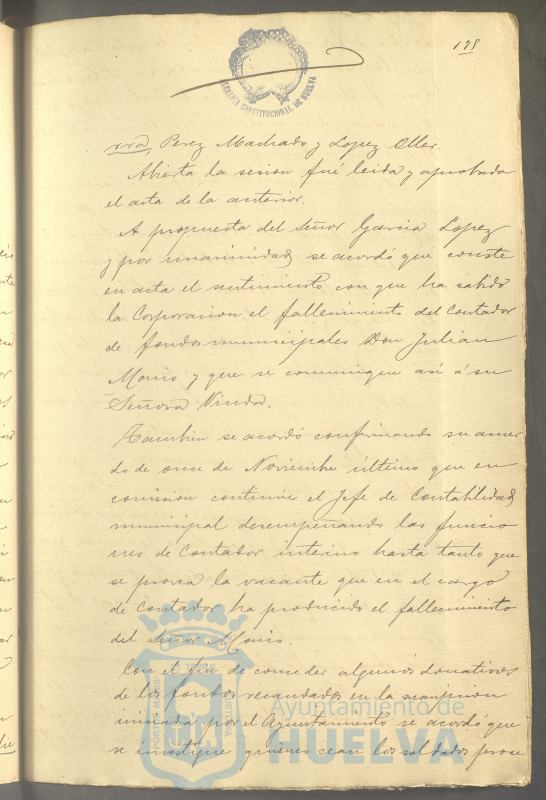 175
ALCALDIA CONSTITUCIONAL DE HUELVA
rra, Perez Machado y Lopez Oller.
Abierta la sesion fué leida y aprobada
el acta de la anterior.
A propuesta del Señor Garcia Lopez
y por unanimidad se acordó que conste
en acta el sentimiento con que ha sabido
la Corporacion el fallecimiento del Contador
de fondos municipales Don Julian
y que se comunique asi á su
Señora Viuda.
Tambien se acordó confirmando su acuer
do de once de Noviembre último que en
comision continúe el Jefe de Contabilidad
municipal desempeñando las funcio
nes de Contador interino hasta tanto que
se provea la vacante que en el cargo
de Contador ha producido el fallecimiento
del Señor
Con el fin de conceder algunos donativos
de los fondos recaudados en la suscripcion
iniciada por el Ayuntamiento se acordó que
se investigue quienes sean los soldados proce
PORTUS MARIS
ET TERRE
CUSTODIA
Ayuntamiento de
HUELVA